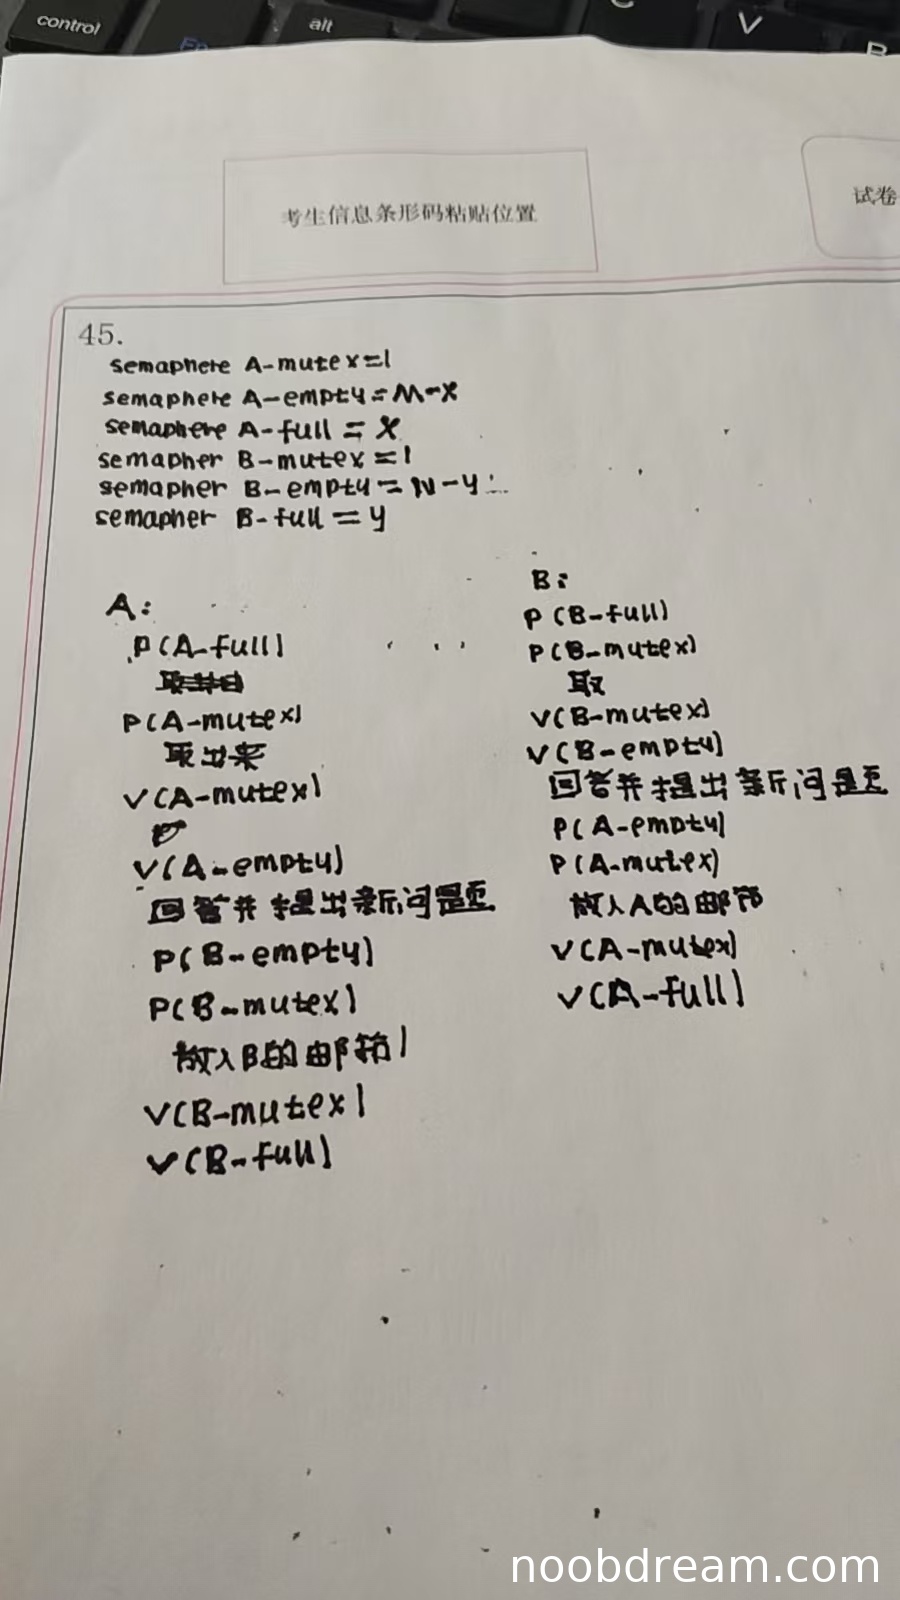 control
alt
Fn
C
V
B
考生信息条形码粘贴位置
试卷
45.
semaphere A-mutex=1
semaphere A-empty=M-X
semaphere A-full = X
semapher B-mutex=1
semapher B-empty=N-y
semapher B-full = y
A:
P(A-full)
P(A-mutex)
取出来
V(A-mutex)
V(A-empty)
回答并提出新问题
P(B-empty)
P(B-mutex)
放入B的邮箱
V(B-mutex)
V(B-full)
B:
P(B-full)
P(B-mutex)
取
V(B-mutex)
V(B-empty)
回答并提出新问题
P(A-empty)
P(A-mutex)
放入A的邮箱
V(A-mutex)
V(A-full)
noobdream.com